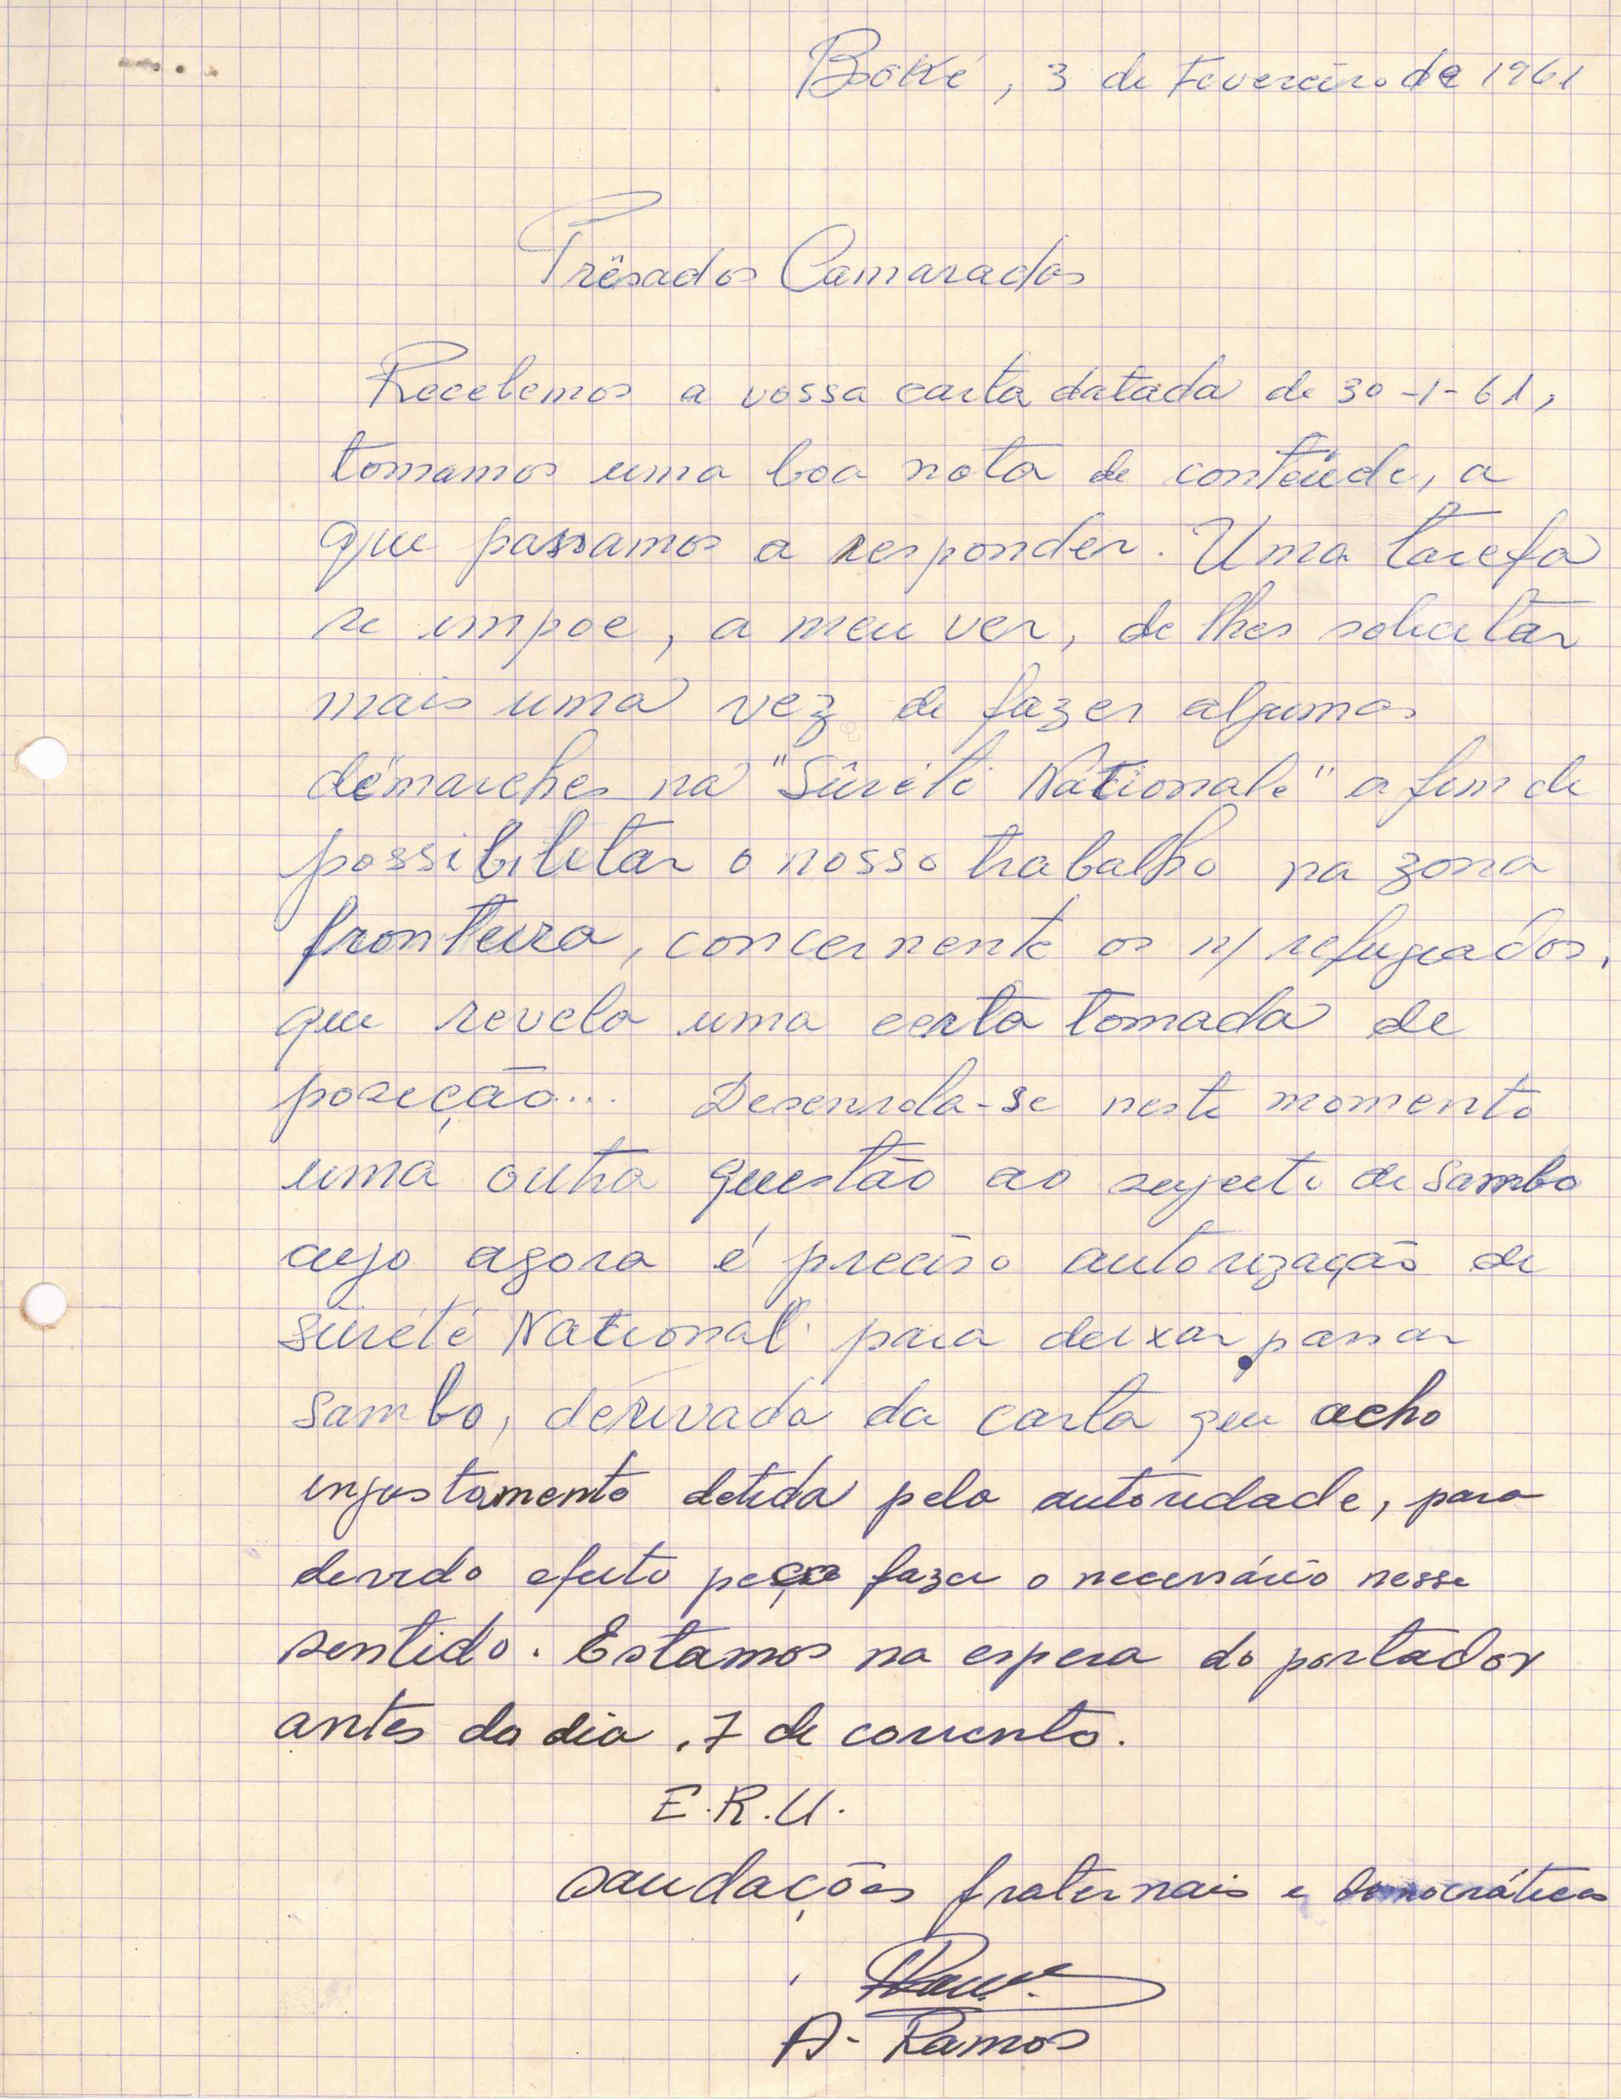 Boké, 3 de Fevereiro de 1961
Prêsados Camaradas
Recebemos a vossa carta datada de 30-1-61,
tomamos uma boa nota de conteúdo, a
que passamos a responder. Uma tarefa
se impoe, a meu ver, de lhes solicitar
mais uma vez de fazer algumas
démarches na "Sûrété Nationale" a fim de
possibilitar o nosso trabalho na zona
fronteira, concernente os n/ refugiados,
que revela uma certa tomada de
posição... Desenrola-se neste momento
uma outra questão ao sujeito de Sambo
cujo agora é preciso autorização de
Sûrété National para deixar passar
Sambo, derivada da carta que acho
injustamente detida pela autoridade, para
devido efeito peço fazer o necessário nesse
sentido. Estamos na espera do portador
antes do dia, 7 de corrento.
E.R.U.
Saudações fraternais e democráticas
A- Ramos